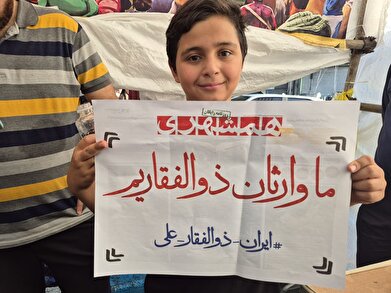 همشهری
ما وارثان ذوالفقاریم
#ایران-ذوالفقار-علی